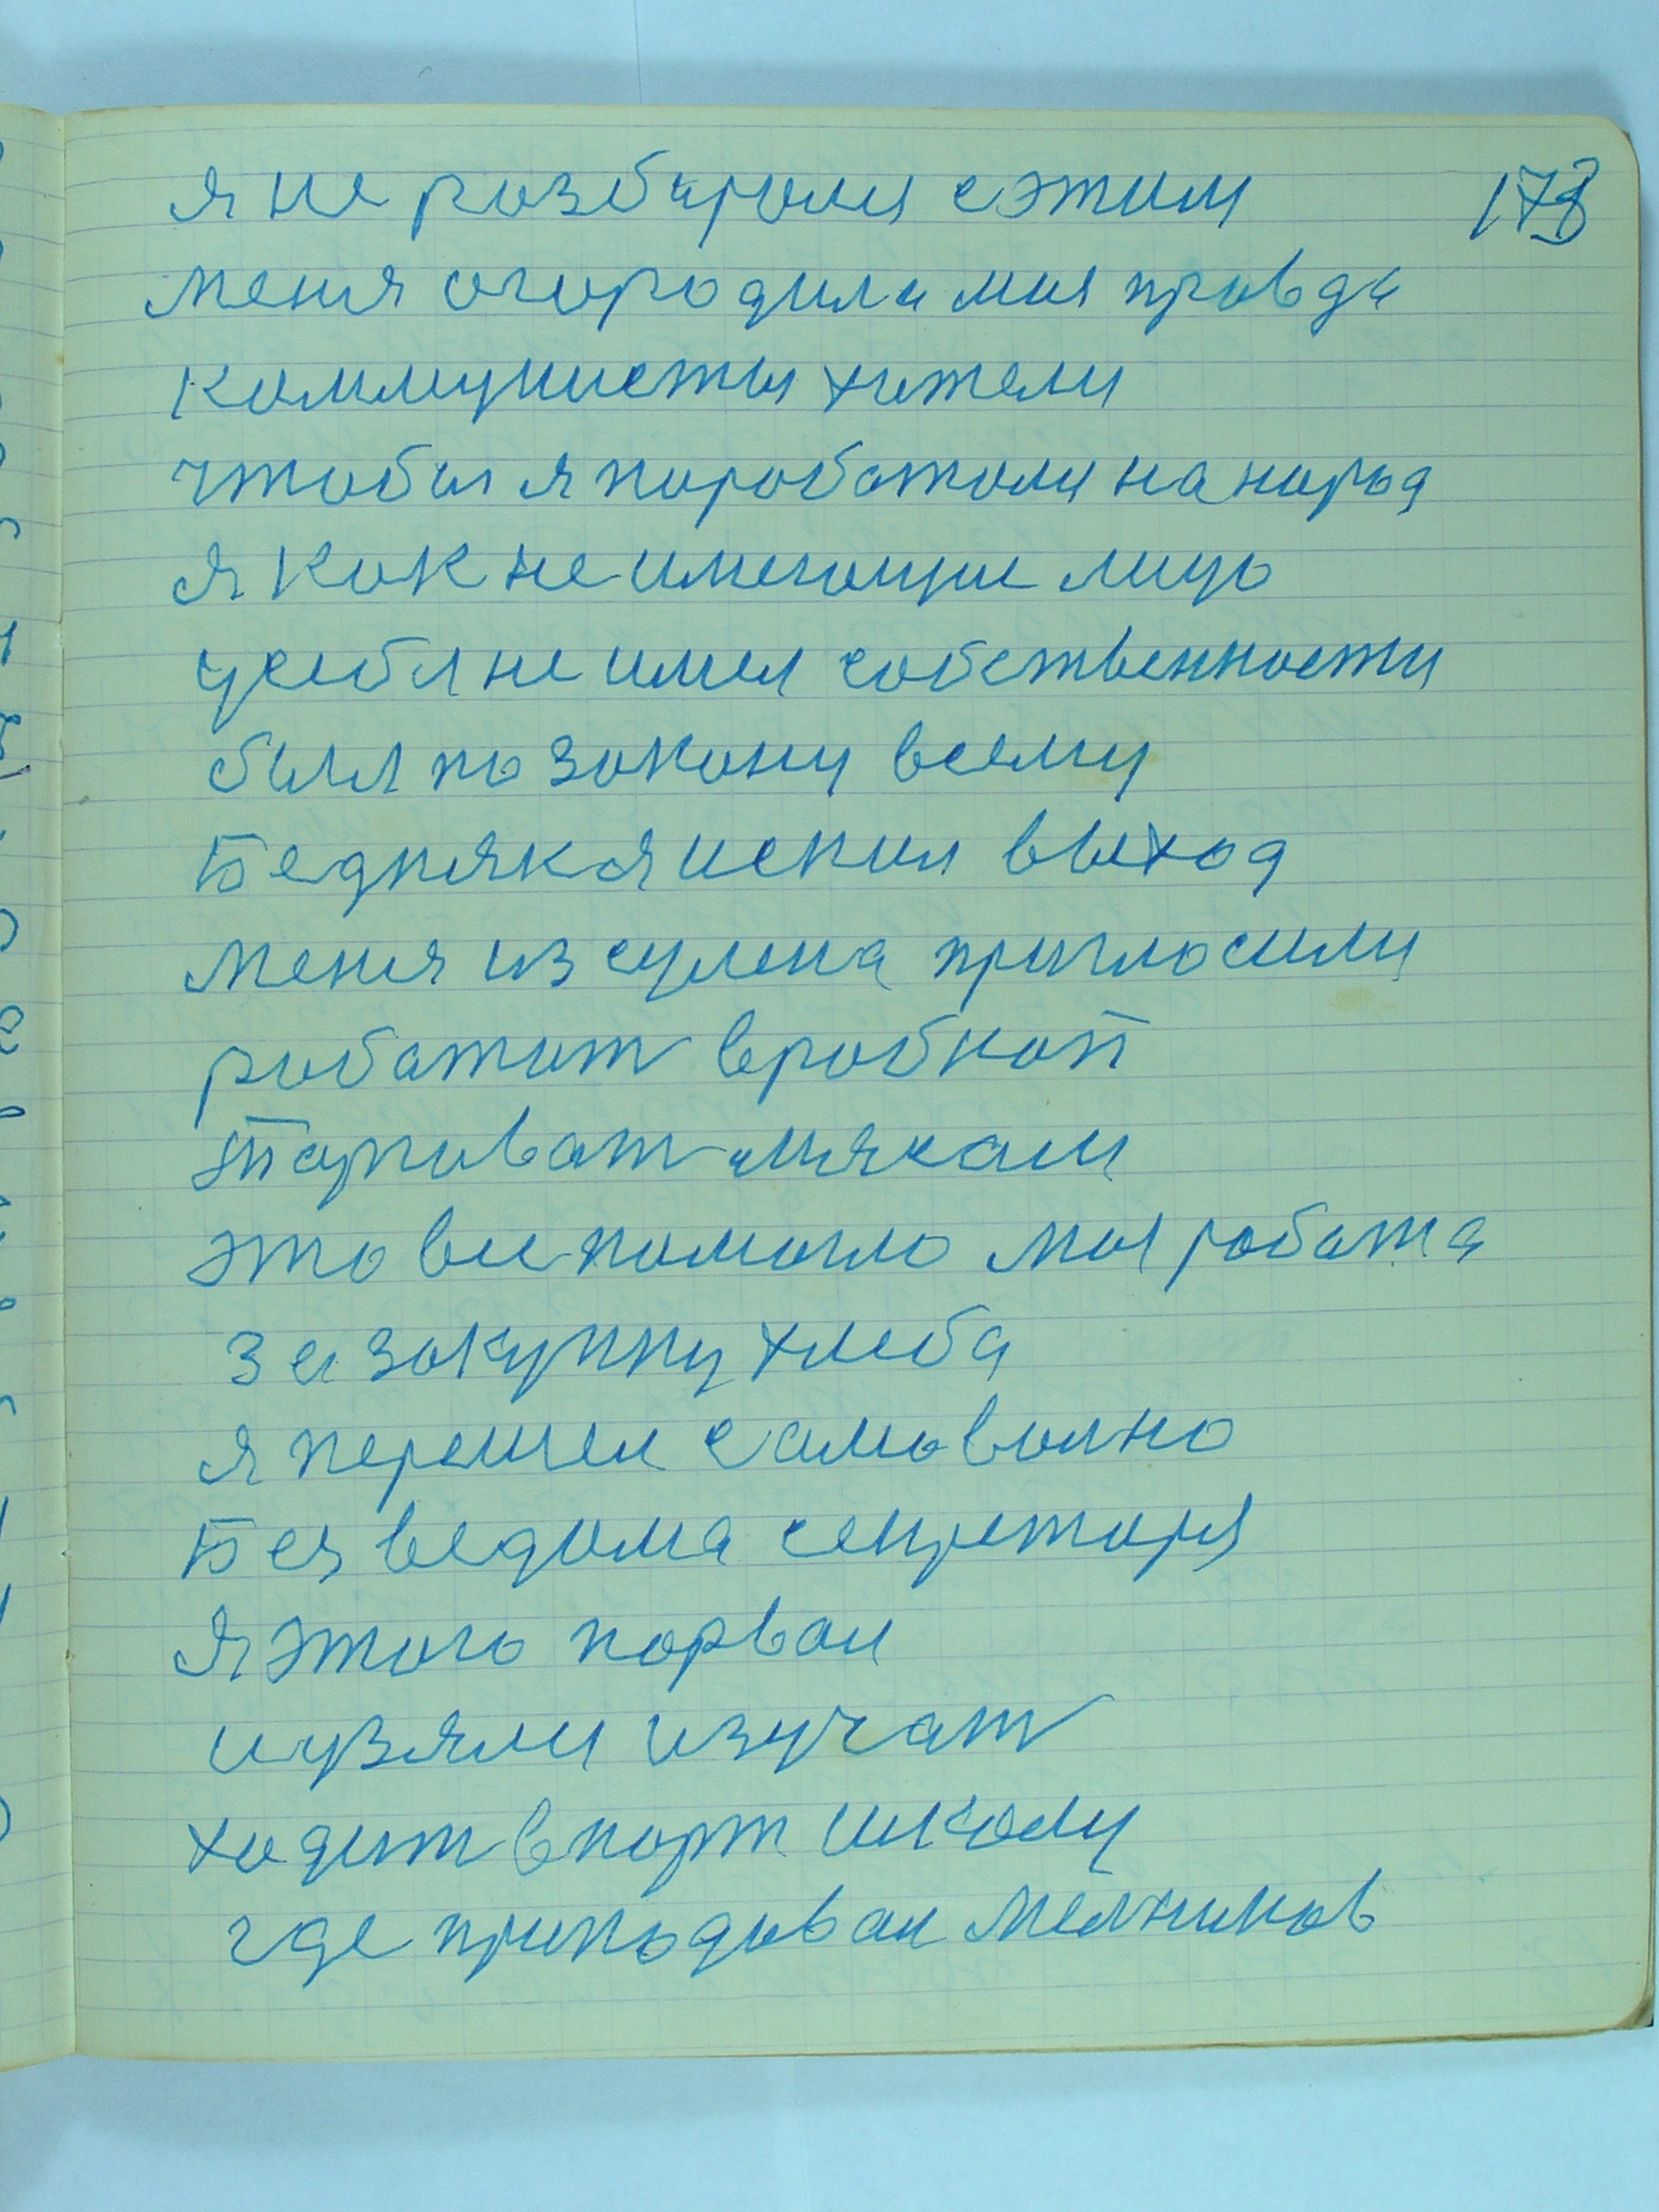 я не розбиролся с этим 173
меня огородила моя провда
коммунисты хители
чтобы я поработоли на нарьд
я кок не имеющие лицо
у себя не имел собственности
был по зокону всему
Бедняк я искил выход
меня из сулина приглосили
работит в робкоп
Тарговат мясам
это все помогло моя работа
за зокупку хлеба
я перешел самоволно
Без ведома секреторя
я этого порвал
и узяли изучат
ходит в порт школу
где приподовал Мелников